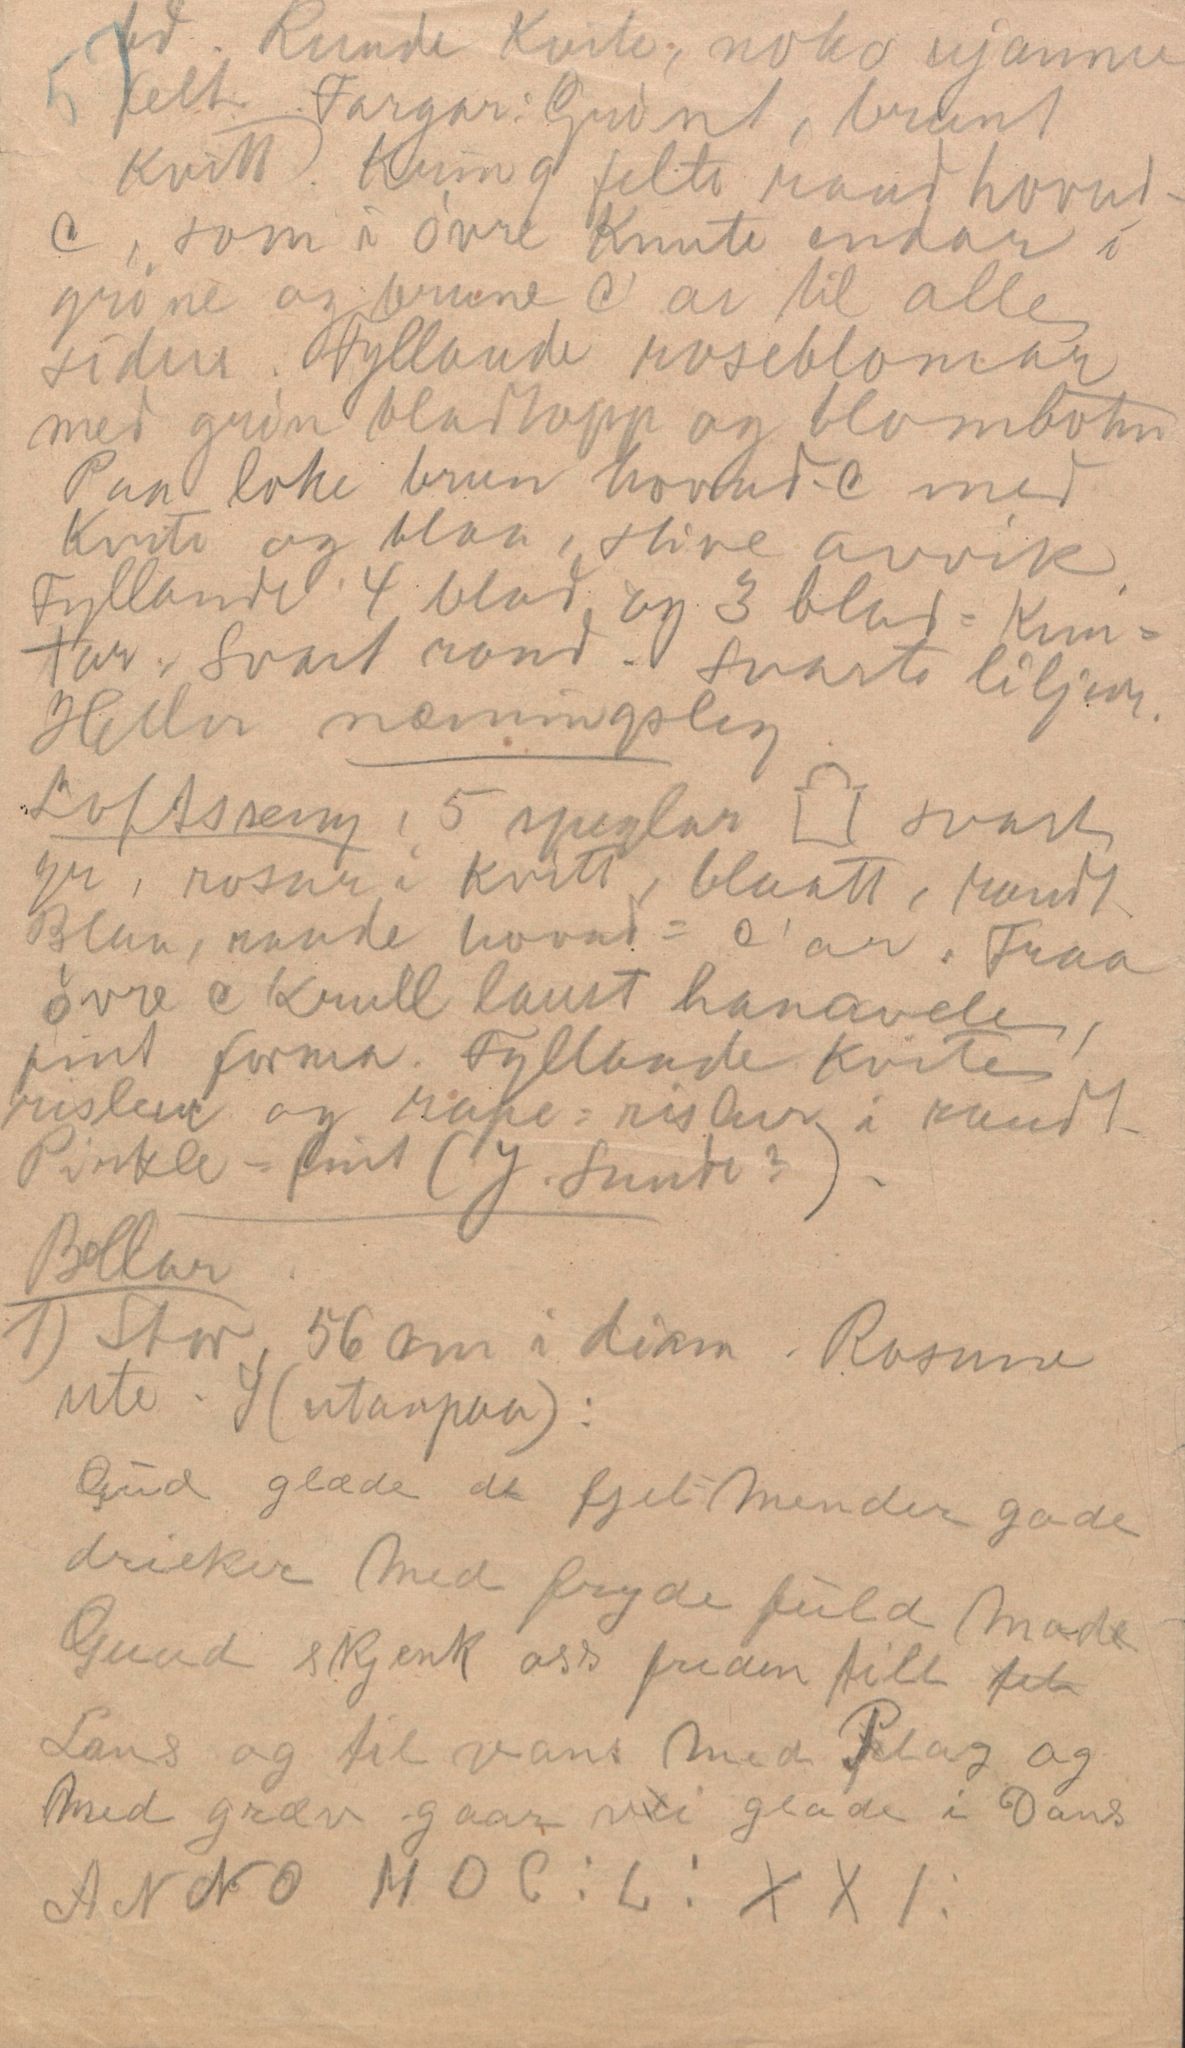 57
bd. Runde kvite, noko ujamne
felt. Fargar: Grönt, brunt
kvitt. Kring felte raud hovud-
C, som i övre knute endar i
gröne og brune C'ar til alle
sidur. Fyllande roseblomar
med grön bladtopp og blombotn
Paa loke brun hovud-C med
kvite og blaa, stive avvik.
Fyllande 4 blad og 3 blad = knu-
tar. Svart rand. Svarte liljur.
Heller næmingsleg
Loftsseng, 5 speglar svart
gr, rosur i kvitt, blaatt, raudt
Blaa, raude hovud = C'ar. Fraa
övre C krull laust hanavele,
fint forma. Fyllande kvite
rislur og rape = rislur i raudt
Pirkle - fint (J. Sunde?).
Bollar
1) Stor, 56 cm i diam. Rosune
ute. J (utanpaa):
Gud glæde de fjel Mender gode
drieker Med fryde fuld Mode
Guud skjenk oss freden till
Lans og til vans Med Plog og
Med græv gaar vi glade i Dans
ANNO MDC:L:XXI: